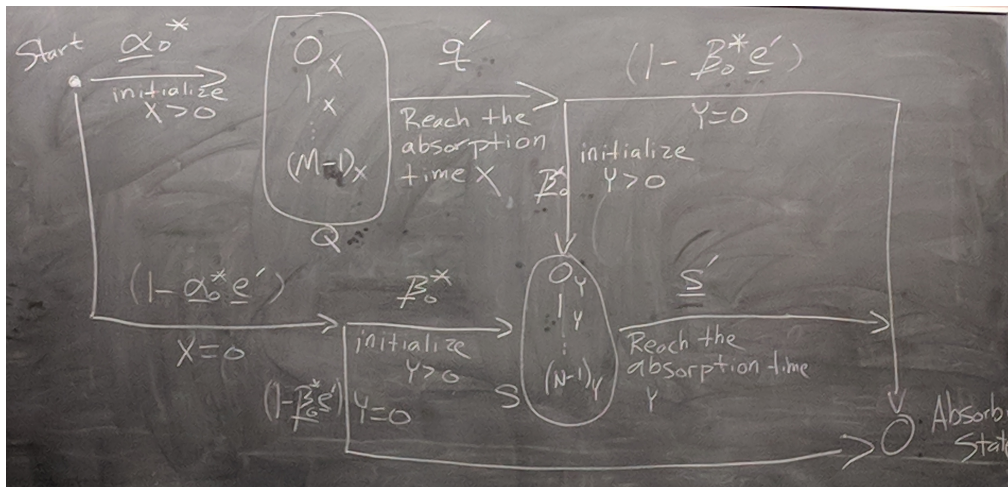 Start
α₀*
initialize
X>0
0x
1x
(M-1)x
Q
q'
Reach the
absorption
time X
(1-β₀*e')
Y=0
initialize
Y>0
β₀*
(1-α₀*e')
X=0
β₀*
initialize
Y>0
(1-β₀*e')
Y=0
0Y
1Y
(N-1)Y
S
s'
Reach the
absorption time
Y
Absorb
Stat